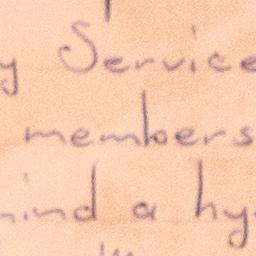 y Service
members
hind a hy